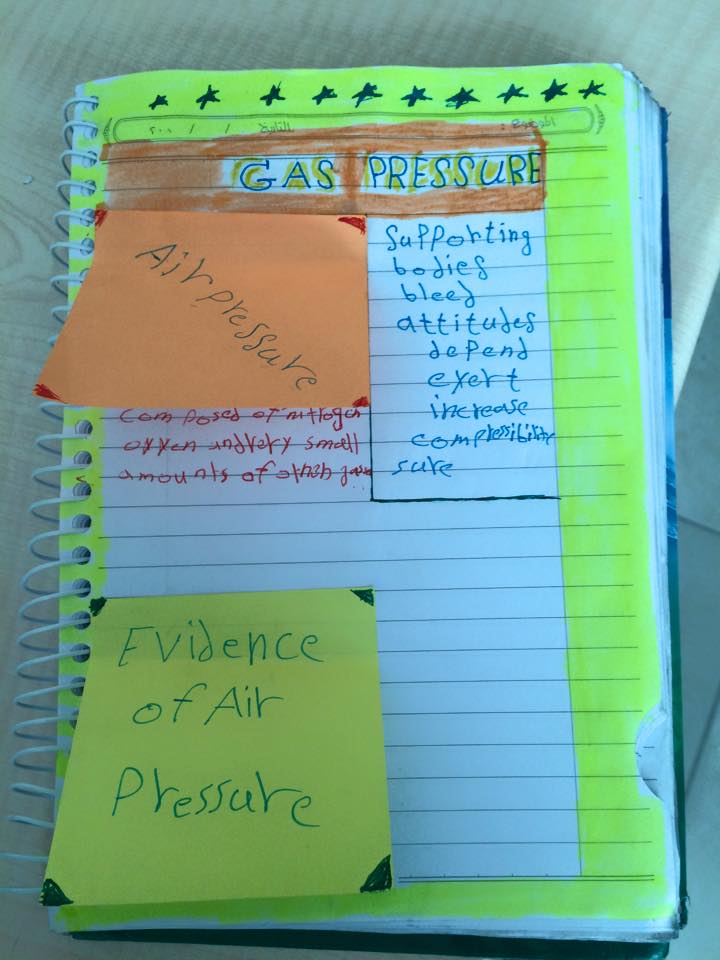 ٢٠٠ / / التاريخ
الموضوع :
GAS PRESSURE
Air pressure
Supporting
bodies
bleed
attitudes
depend
exert
increase
compressibility
sure
composed of nitrogen
oxygen and very small
amounts of other gases
Evidence
of Air
Pressure